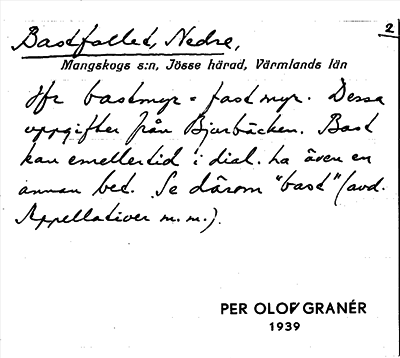 2
Bastfallet, Nedre,
Mangskogs s:n, Jösse härad, Värmlands län
Jfr bastmyr = fastmyr. Dessa
uppgifter från Bjurbäcken. Bast
kan emellertid i dial. ha även en
annan bet. Se därom "bast" (avd.
Appellativer m.m.).
PER OLOF GRANÉR
1939